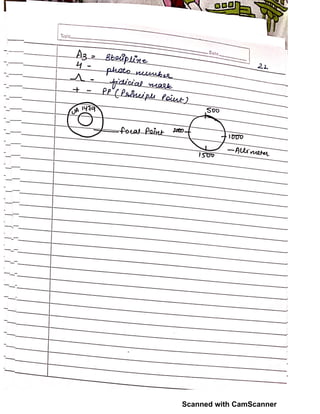 Date
21
A3 = Stripline
4 - photo number
- fidicial mark
+ - PP (Principle Point)
500
1479
focal Point
1000
1500
Altimeter
Scanned with CamScanner